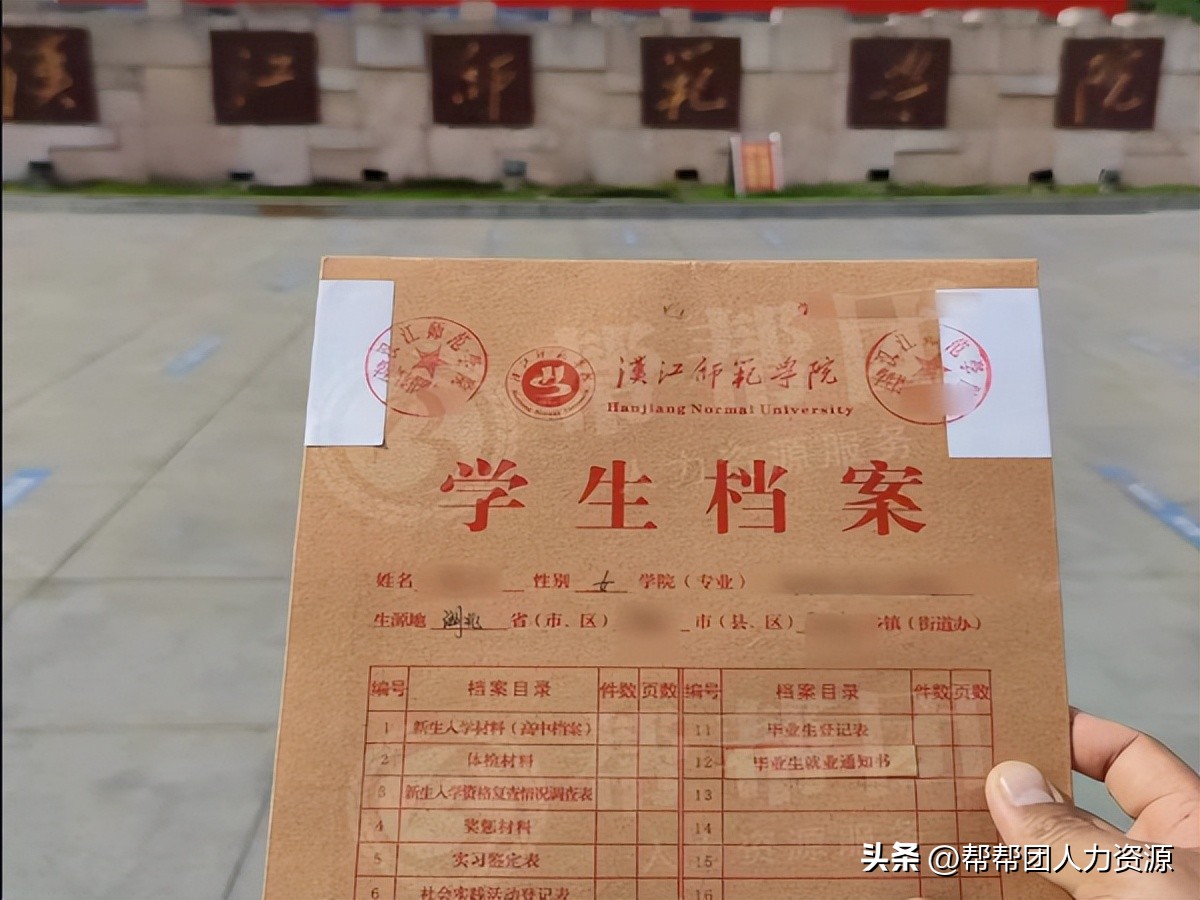 漢江师範学院
漢江师範学院
Hanjiang Normal University
学生档案
姓名 性别 女 学院(专业)
生源地 湖北 省(市、区) 市(县、区) 镇(街道办)
编号 档案目录 件数 页数 编号 档案目录 件数 页数
1 新生入学材料(高中档案) 11 毕业生登记表
2 体检材料 12 毕业生就业通知书
3 新生入学资格复查情况调查表 13
4 奖惩材料 14
5 实习鉴定表 15
6 社会实践活动登记表 16
头条 @帮帮团人力资源